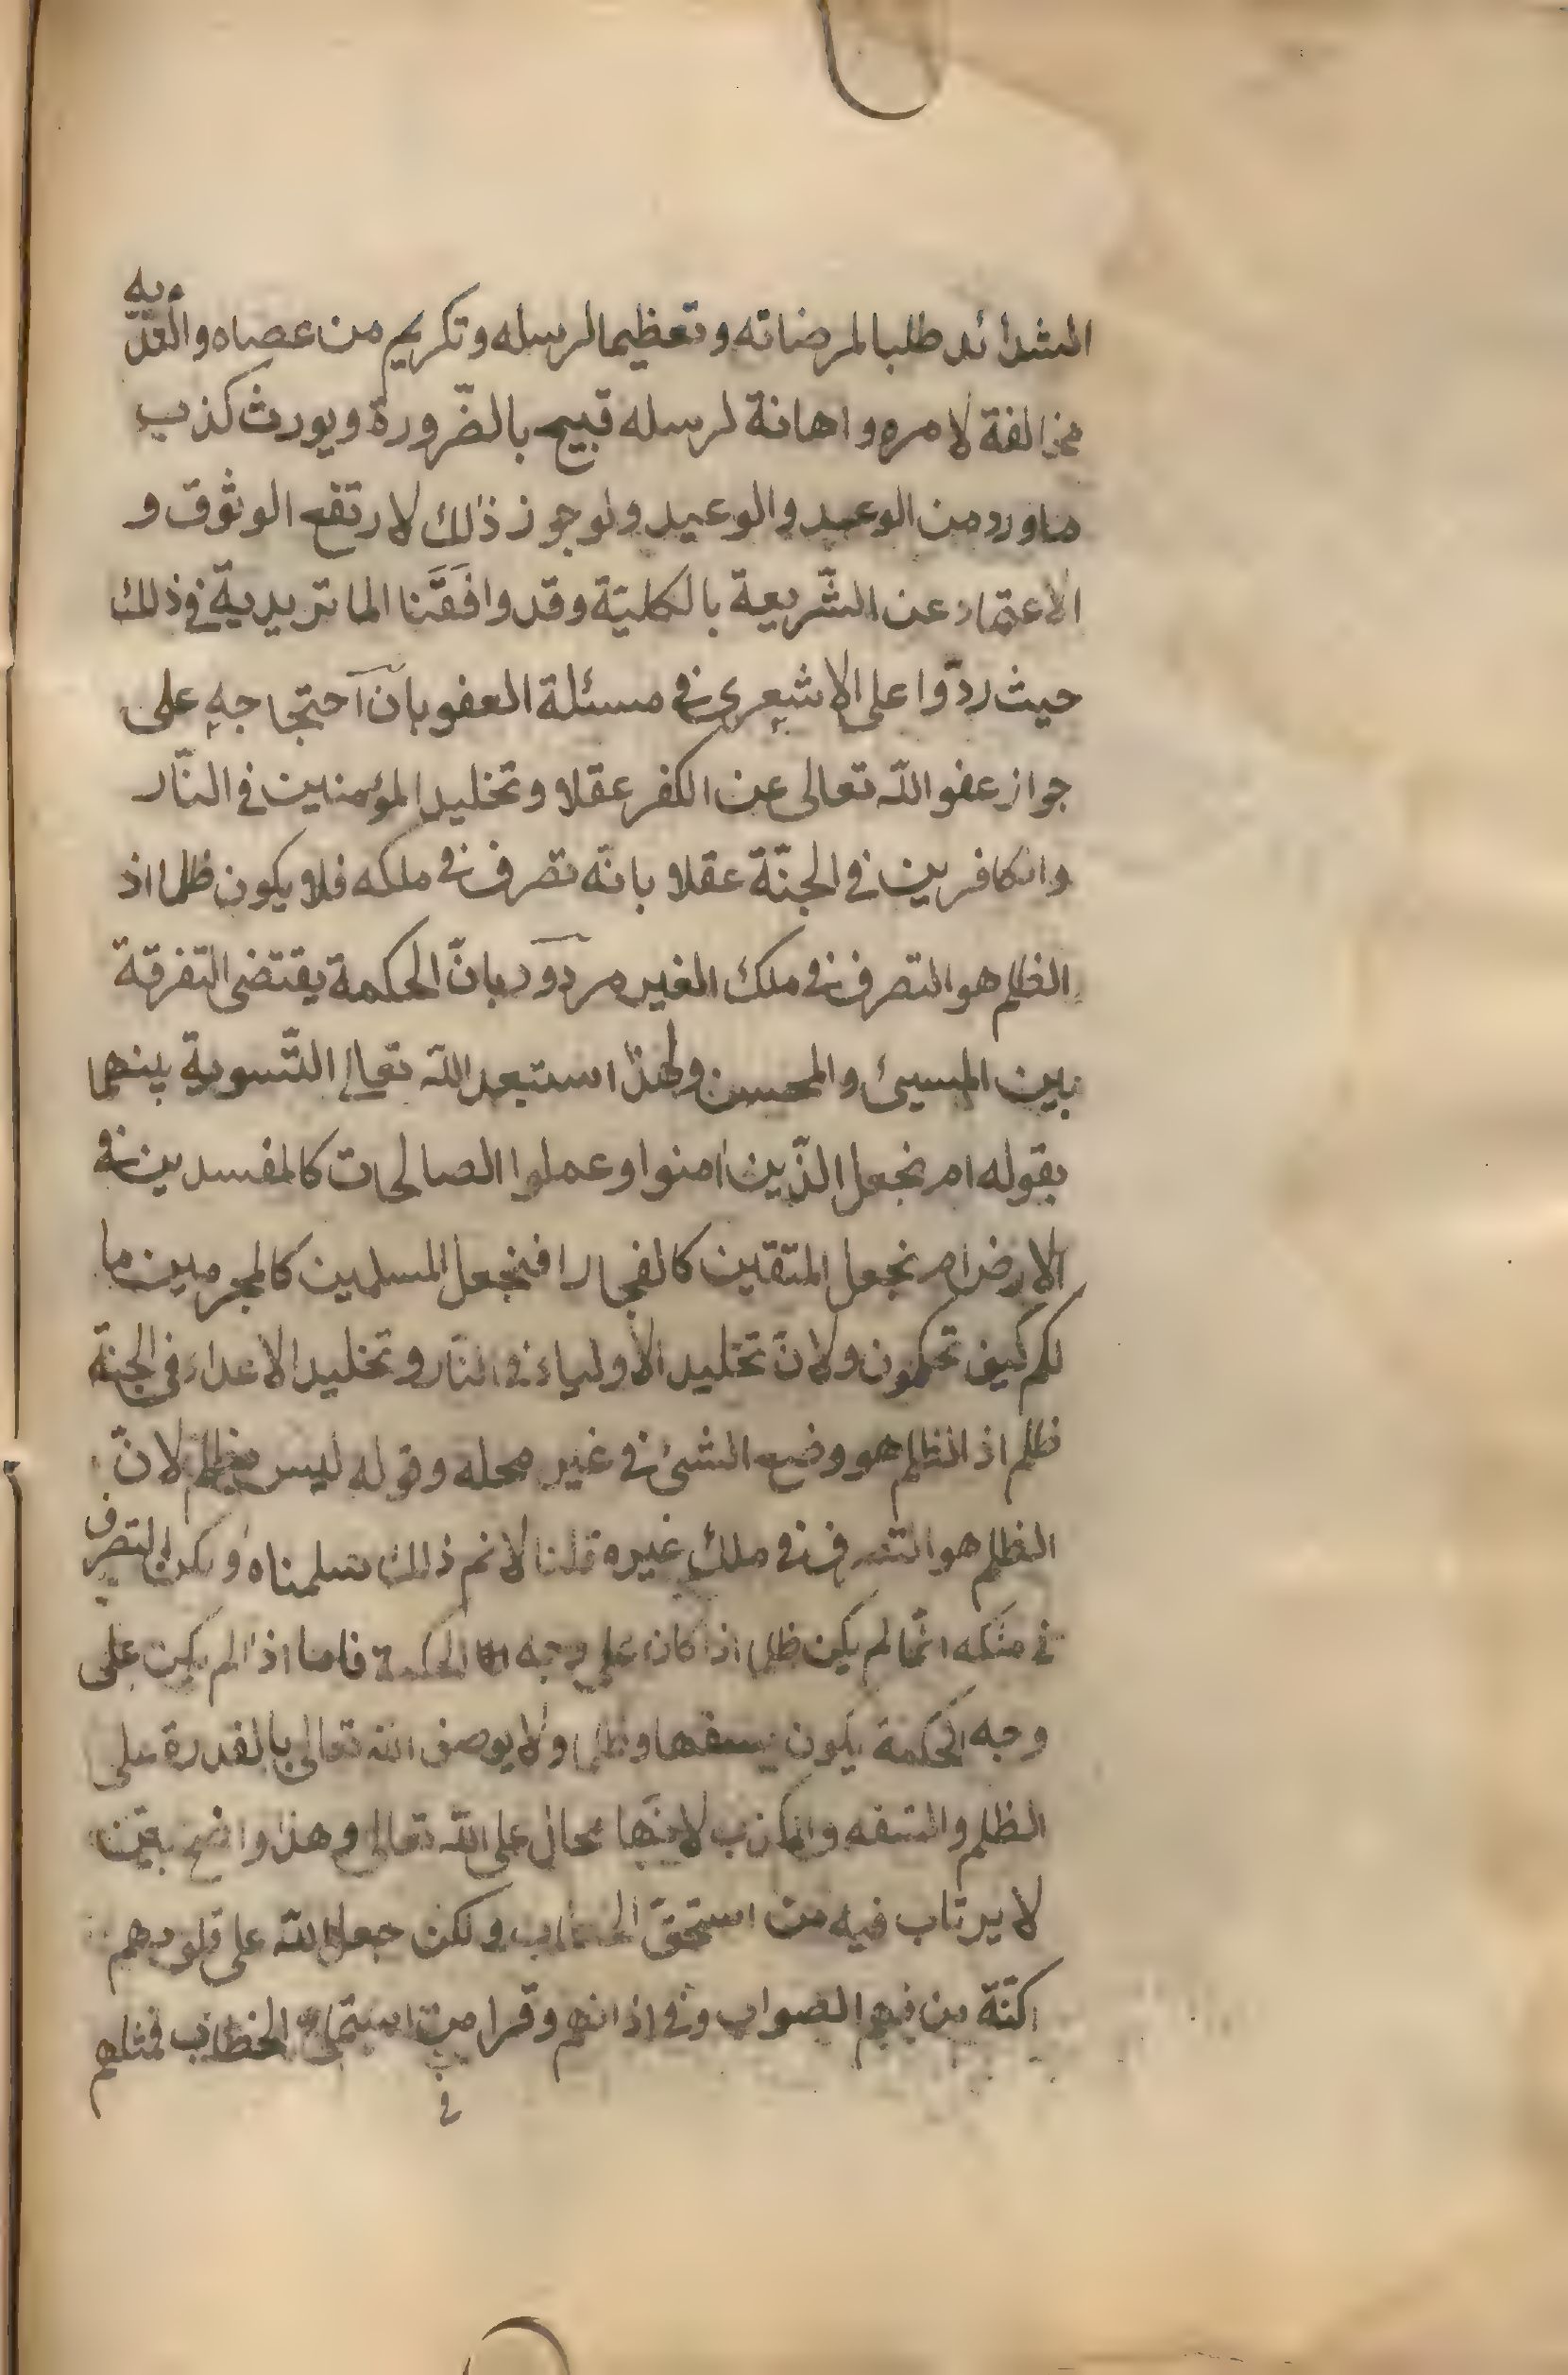 الشدائد طلبا لمرضاته وتعظيما لرسله وتكريم من عصاه و
مخالفة لامره واهانة لرسله قبيح بالضّرورة ويورث كذب
ما ورد من الوعد والوعيد ولو جوز ذلك لارتفع الوثوق و
الاعتماد عن الشّريعة بالكليّة وقد وافَقَنا الماتريدية في ذلك
حيث ردّوا على الاشعرى في مسئلة العفو بانّ احتجاجه على
جواز عفو اللّه تعالى عن الكفر عقلا وتخليد المؤمنين في النّار
والكافرين في الجنّة عقلا بانّه تصرف في ملكه فلا يكون ظلما اذ
الظلم هو التصرف في ملك الغير مردود بانّ الحكمة يقتضى التفرقة
بين المسيئ والمحسن ولهذا استبعد اللّه تعالى التّسوية بينهما
بقوله ام نجعل الذّين امنوا وعملوا الصالحات كالمفسدين في
الارض ام نجعل المتقين كالفجار افنجعل المسلمين كالمجرمين ما
لكم كيف تحكمون ولانّ تخليد الاولياء في النّار وتخليد الاعداء في الجنّة
ظلم اذ الظلم هو وضع الشئ في غير محله وقوله ليس بظلم لانّ
الظلم هو التصرف في ملك غيره قلنا لانم ذلك سلمناه ولكن التصرف
في ملكه انّما لم يكن ظلما اذا كان على وجه الحكمة فاما اذا لم يكن على
وجه الحكمة يكون سفها وظلما ولا يوصف اللّه تعالى بالقدرة على
الظلم والسّفه والكذب لانّها محال على اللّه تعالى وهذا واضح بيّن
لا يرتاب فيه من استحقّ الخطاب ولكن جعل اللّه على قلوبهم
اكنّة من فهم الصواب وفي اذانهم وقرا من استماع الخطاب فمثلهم